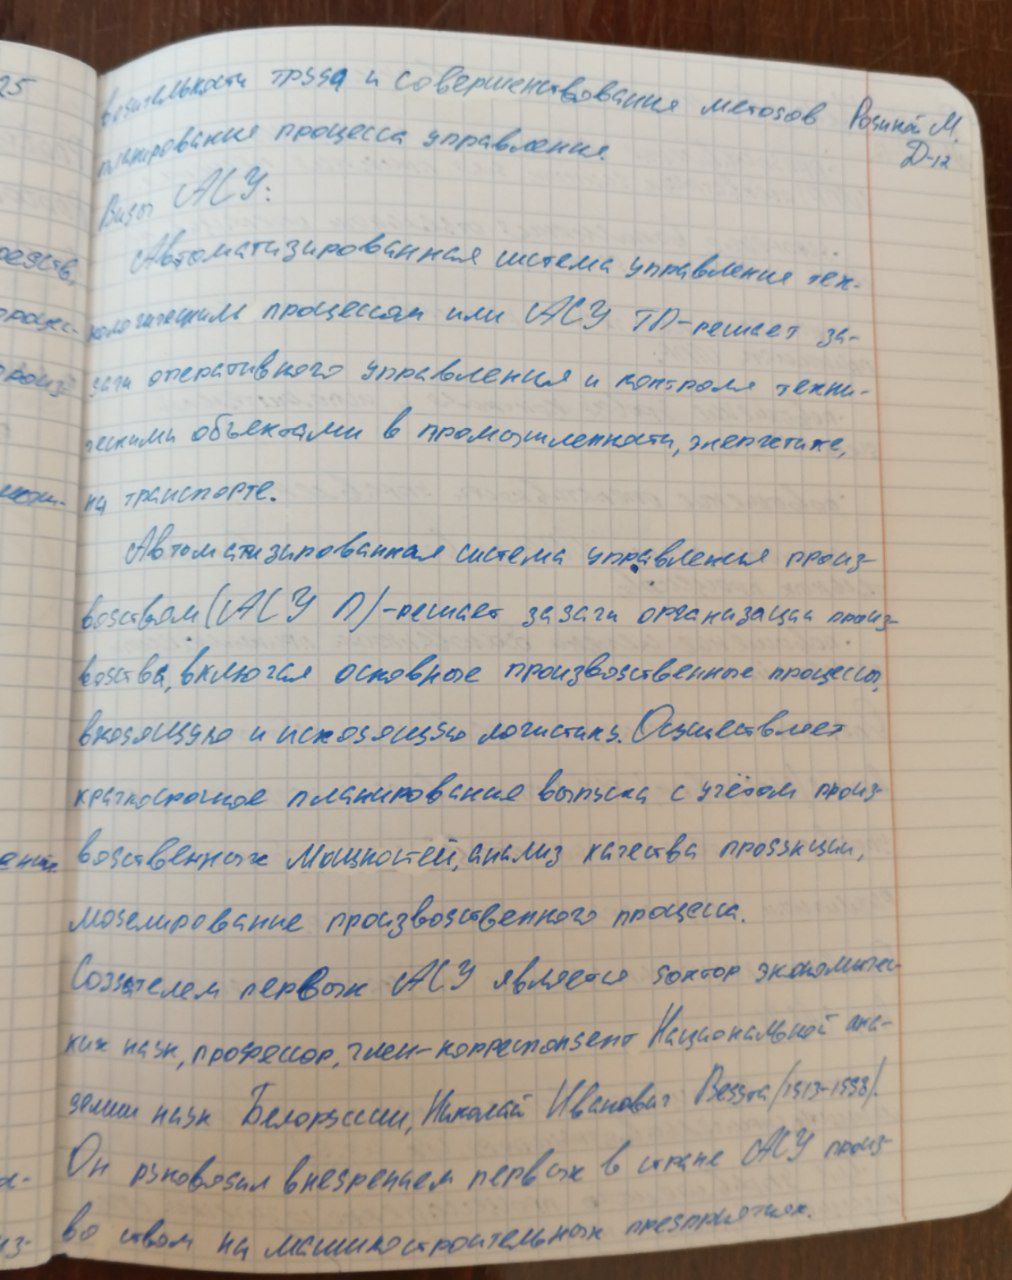 водительности труда и совершенствование методов Родиной М.
планирование процесса управления. Д-12
Виды АСУ:
Автоматизированная система управления тех-
нологическим процессом или АСУ ТП-решает за-
дачи оперативного управления и контроля техни-
ческими объектами в промышленности, энергетике,
на транспорте.
Автоматизированная система управления произ-
водством (АСУ П)-решает задачи организации произ-
водства, включая основные производственные процессы,
входящую и исходящую логистику. Осуществляет
краткосрочное планирование выпуска с учётом произ-
водственных мощностей, анализ качества продукции,
моделирование производственного процесса.
Создателем первых АСУ является доктор экономичес-
ких наук, профессор, член-корреспондент Национальной ака-
демии наук Белоруссии, Николай Иванович Ведута (1913-1998).
Он руководил внедрением первых в стране АСУ произ-
водством на машиностроительных предприятиях.